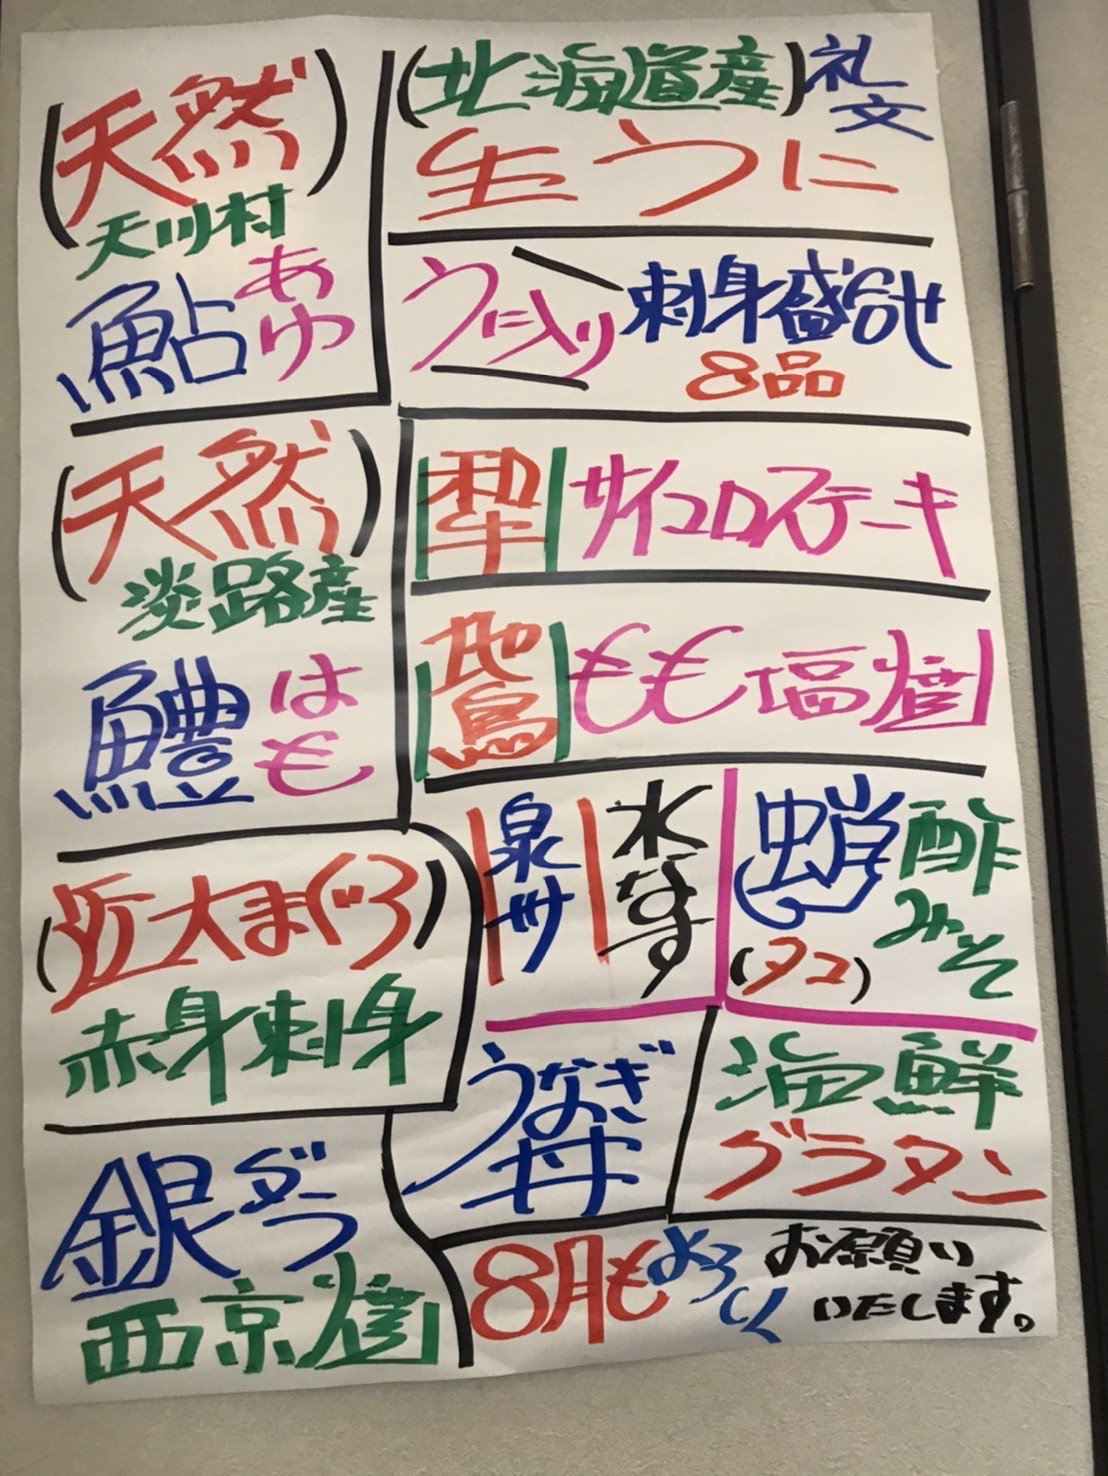 (天然)
天川村
鮎 あゆ
(北海道産) 礼文
生うに
うに入り 刺身盛合せ
8品
(天然)
淡路産
鱧 はも
和牛 サイコロステーキ
地鳥 もも塩焼
(近大まぐろ)
赤身刺身
泉州 水なす
蛸 酢みそ
(タコ)
うなぎ丼
海鮮
グラタン
銀ダラ
西京焼
8月もよろしくお願い
いたします。